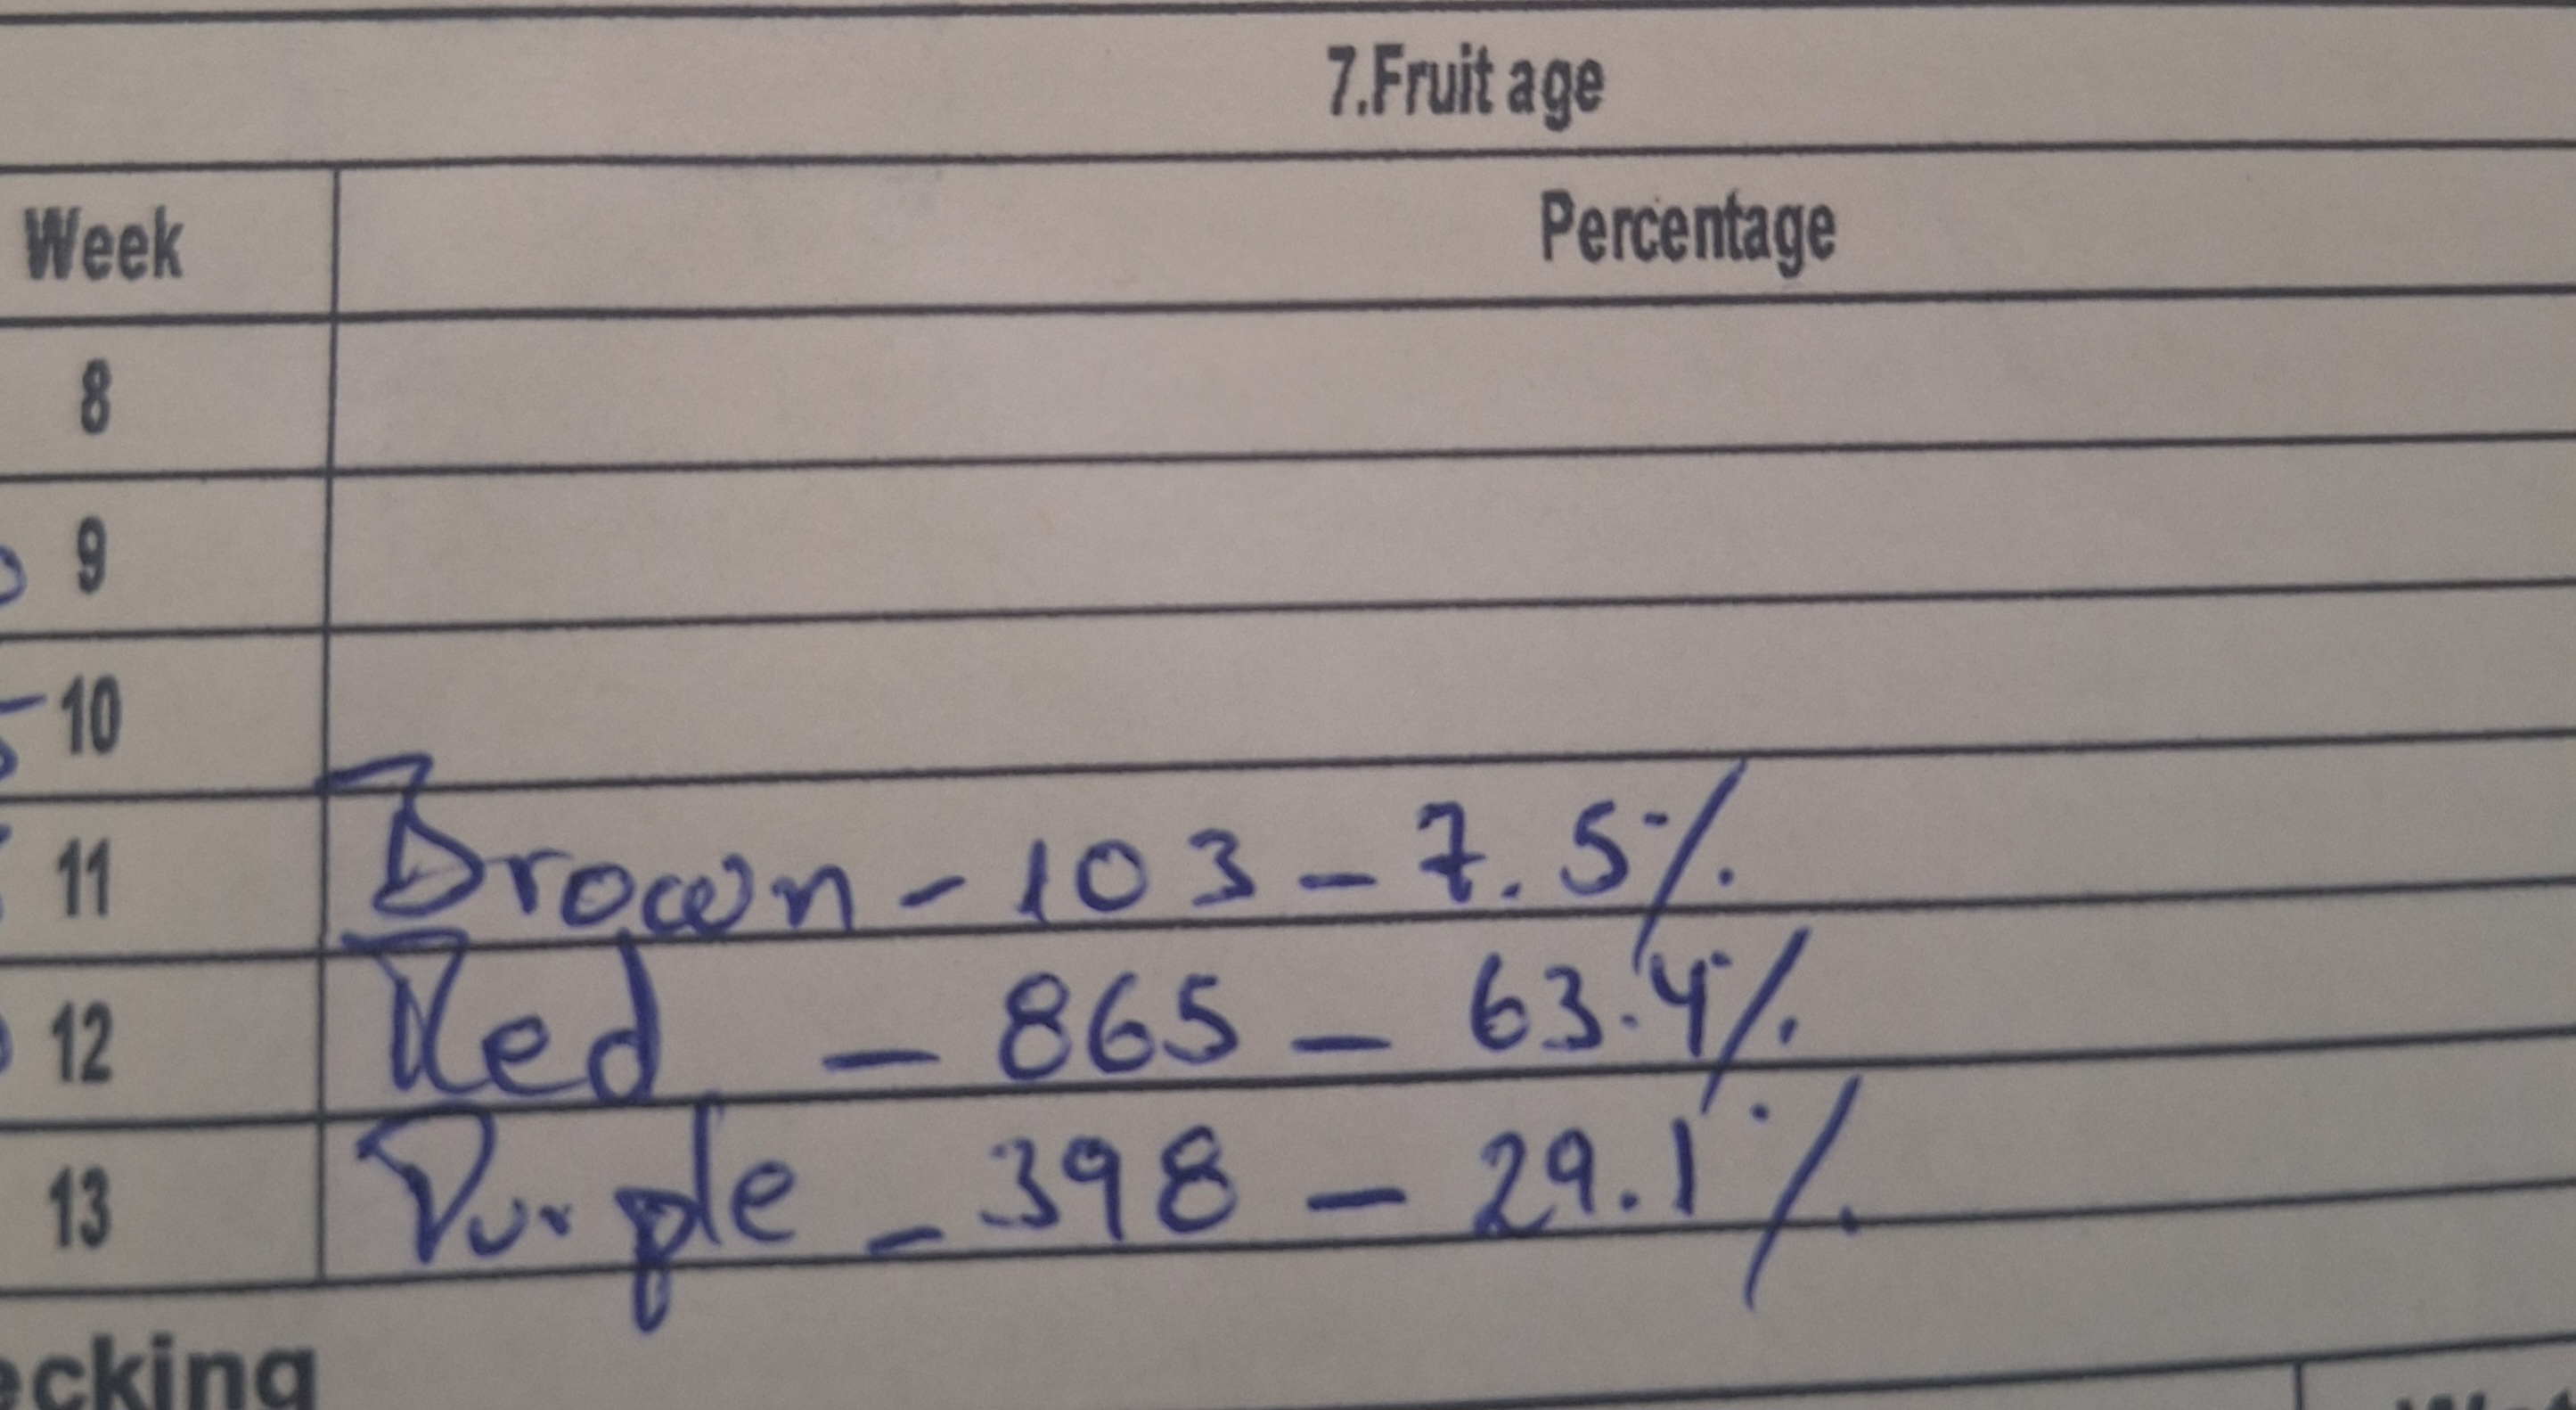 7.Fruit age
Week Percentage
8
9
10
11 Brown - 103 - 7.5%
12 Red - 865 - 63.4%
13 Purple - 398 - 29.1%
ecking